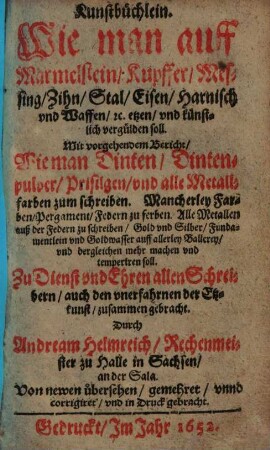 Kunstbüchlein.
Wie man auff
Marmelstein/ Kupffer/ Mes-
sing/ Zihn/ Stal/ Eisen/ Harnisch
vnd Waffen/ ꝛc. etzen/ vnd künst-
lich vergülden soll.
Mit vorgehendem Bericht/
Wie man Dinten/ Dinten-
pulver/ Prisilgen/ vnd alle Metall-
farben zum schreiben. Mancherley Far-
ben/ Pergament/ Federn zu ferben. Alle Metallen
auß der Federn zu schreiben/ Gold vnd Silber/ Funda-
mentlein vnd Goldwasser auff allerley Ballerey/
vnd dergleichen mehr machen vnd
temperiren soll.
Zu Dienst vnd Ehren allen Schrei-
bern/ auch den vnerfahrnen der Etz-
kunst/ zusammen gebracht.
Durch
Andream Helmreich/ Rechenmei-
ster zu Halle in Sachsen/
an der Sala.
Von newen übersehen/ gemehret/ vnnd
corrigiret/ vnd in Druck gebracht.
Gedruckt/ Im Jahr 1652.